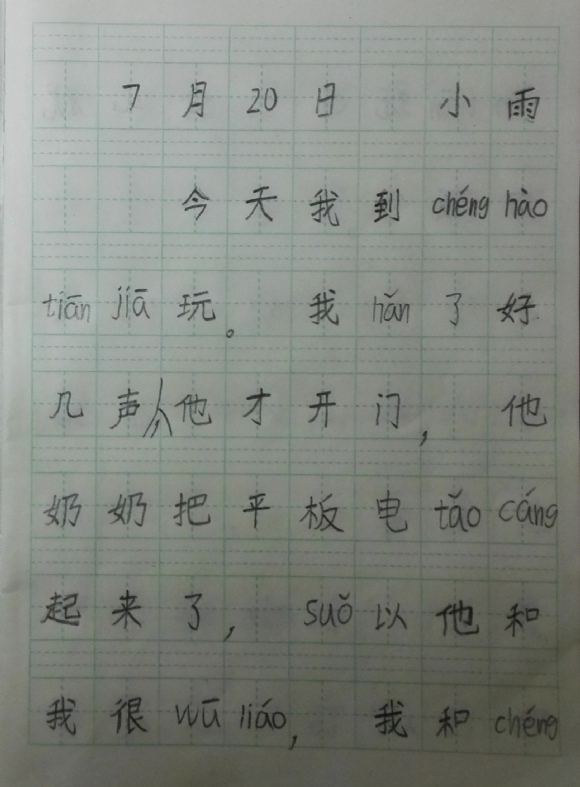 7月20日 小雨
今天我到chéng hào
tiān jiā玩。我hǎn了好
几声，他才开门，他
奶奶把平板电tǎo cáng
起来了，suǒ以他和
我很wū liáo，我和chéng